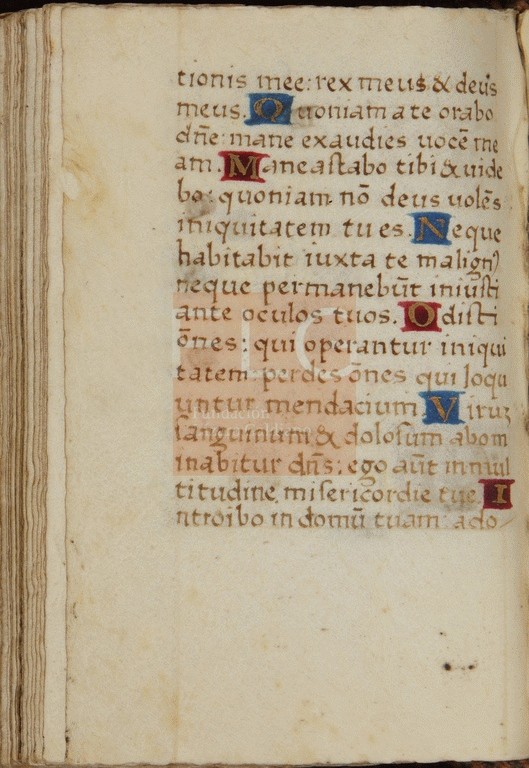 tionis mee: rex meus & deus
meus. Quoniam a te orabo
dñe: mane exaudies uocē me
am. Mane astabo tibi & uide
bo: quoniam nō deus uolēs
iniquitatem tu es. Neque
habitabit iuxta te malign⁹
neque permanebūt iniusti
ante oculos tuos. Odisti
ōnes: qui operantur iniqui
tatem perdes ōnes qui loqu
untur mendacium. Viruꝫ
sanguinum & dolosum abom
inabitur dñs: ego aūt in mul
titudine misericordie tue. I
ntroibo in domū tuam: ado
Fundación